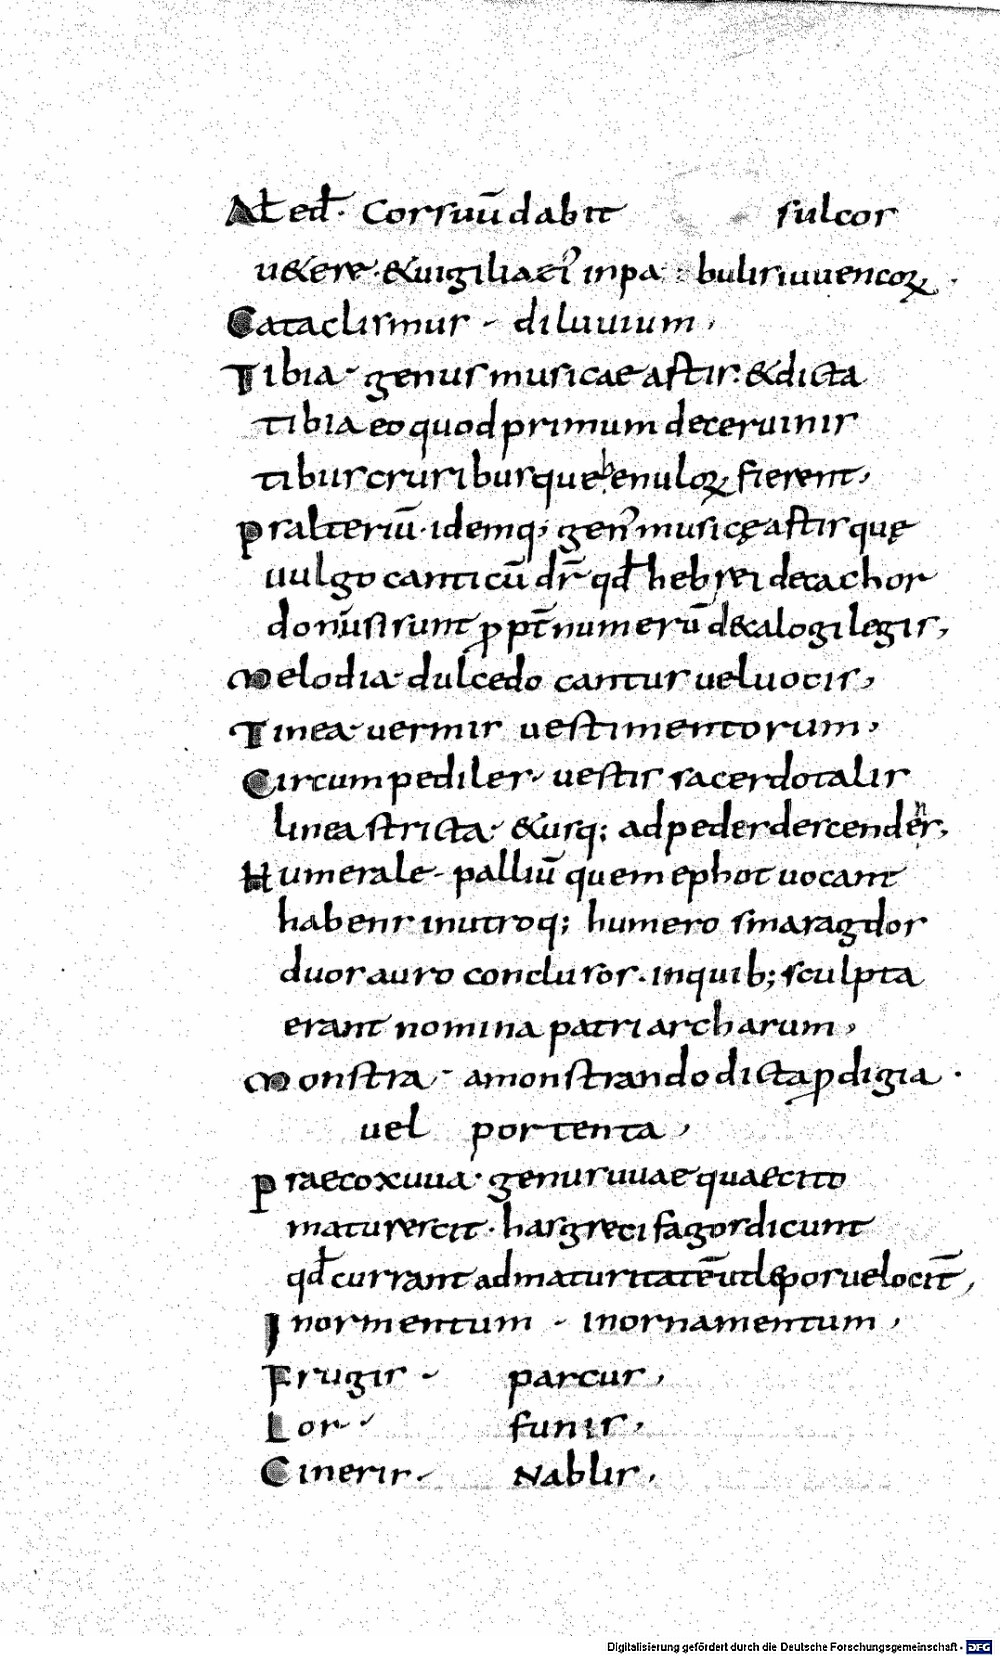 Alt̄ ed̄· Cor suū dabit sulcos
u&ere·&uigilia ei᾽ inpa bulis iuuencoꝝ·
Cataclismus - diluuium,
Tibia· genus musicae artis·&dicta
tibia eo quod primum de ceruinis
tibus cruribusque henuloꝝ fierent,
Psalteriū· idemq; gen᾽ musicę artis quę
uulgo canticū dr̄ qd̄ hebrei decachor
don usi sunt ꝓpt̄ numerū d&alogi legis,
Melodia· dulcedo cantus uel uocis,
Tinea· uermis uestimentorum,
Circumpediles· uestis sacerdotalis
linea stricta· &usq; ad pedes descendens,
Humerale· palliū quem ephot uocant
habens inutroq; humero smaragdos
duos auro conclusos· inquib; sculpta
erant nomina patriarcharum,
Monstra· amonstrando dicta ꝓdigia·
uel portenta,
Praecox uua· genus uuae quae cito
maturescit· has greci fagos dicunt
qd̄ currant ad maturitatē ut lepos uelocit̄,
Inormentum - inornamentum,
Frugis - parcus,
Los - funis,
Cineris - Nablis,
Digitalisierung gefördert durch die Deutsche Forschungsgemeinschaft - DFG